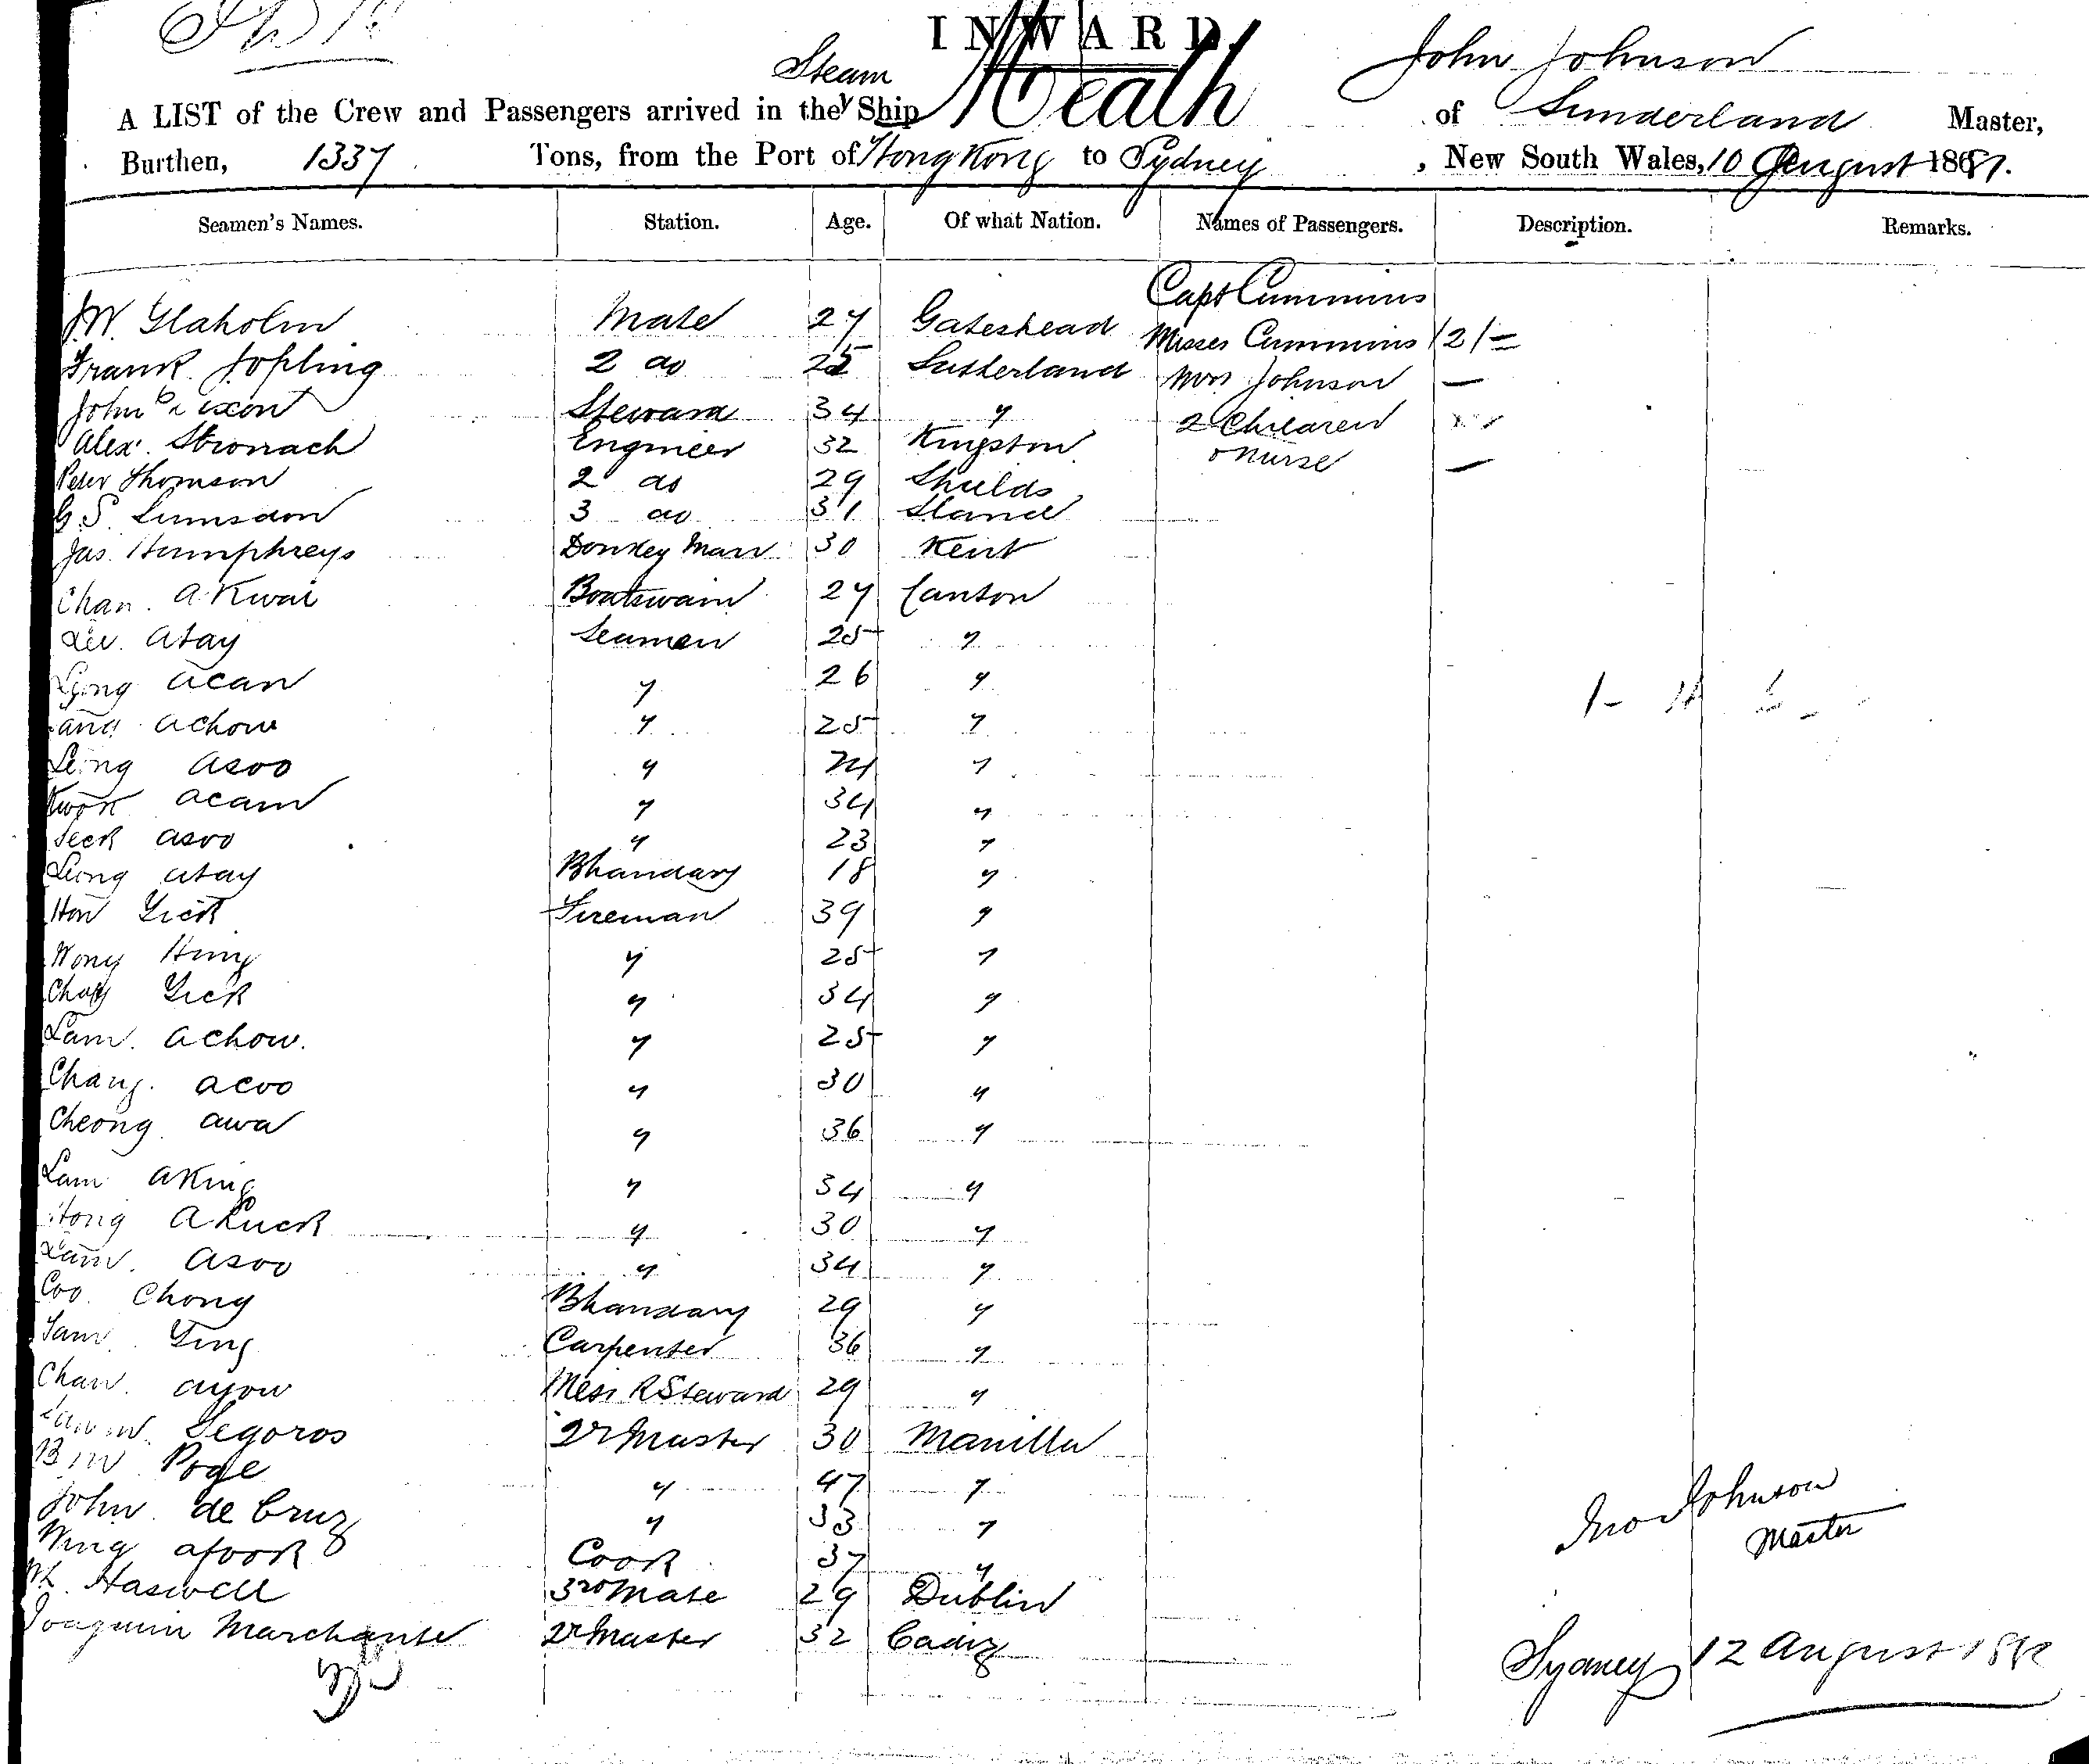 INWARD.
Steam
John Johnson
A LIST of the Crew and Passengers arrived in the Ship Meath of Sunderland Master,
Burthen, 1337 Tons, from the Port of Hong Kong to Sydney, New South Wales, 10 August 1881.
Seamen's Names. Station. Age. Of what Nation. Names of Passengers. Description. Remarks.
Capt Cummins
J.W. Glaholm Mate 27 Gateshead Misses Cummins /2/ =
Frank Jopling 2 do 25 Sutherland Mrs Johnson —
John Steward 34 " 2 Children
Alex. Stronach Engineer 32 Kingston Nurse —
Peter Thomson 2 do 29 Shields
G.S. Lumsdon 3 do 31
Jas. Humphreys Donkey Man 30 Kent
Chan A Kwai Boatswain 27 Canton
Atay Seamen 25 "
Acan " 26 "
Achow " 25 "
Leing Asoo " "
Kwok Acam " 34 "
Seck Asoo " 23 "
Leong Atay Bhandary 18 "
Hon Yick Fireman 39 "
Wong Hing " 25 "
Yick " 34 "
Lam. Achow. " 25 "
Chang. Acoo " 30 "
Cheong Awa " 36 "
Lam Aking " 34 "
A Luck " 30 "
Lam. Asoo " 34 "
Coo Chong Bhandary 29 "
Ying Carpenter 36 "
Chan Ayow Mess R Steward 29 "
Segoros 2r Master 30 Manilla
Poge " 47 "
John de Cruz " 33 "
Wing Afook Cook 37 "
Haswell 3rd Mate 29 Dublin
Joaquin Marchante 2r Master 32 Cadiz
Jno Johnson
Master
Sydney 12 August